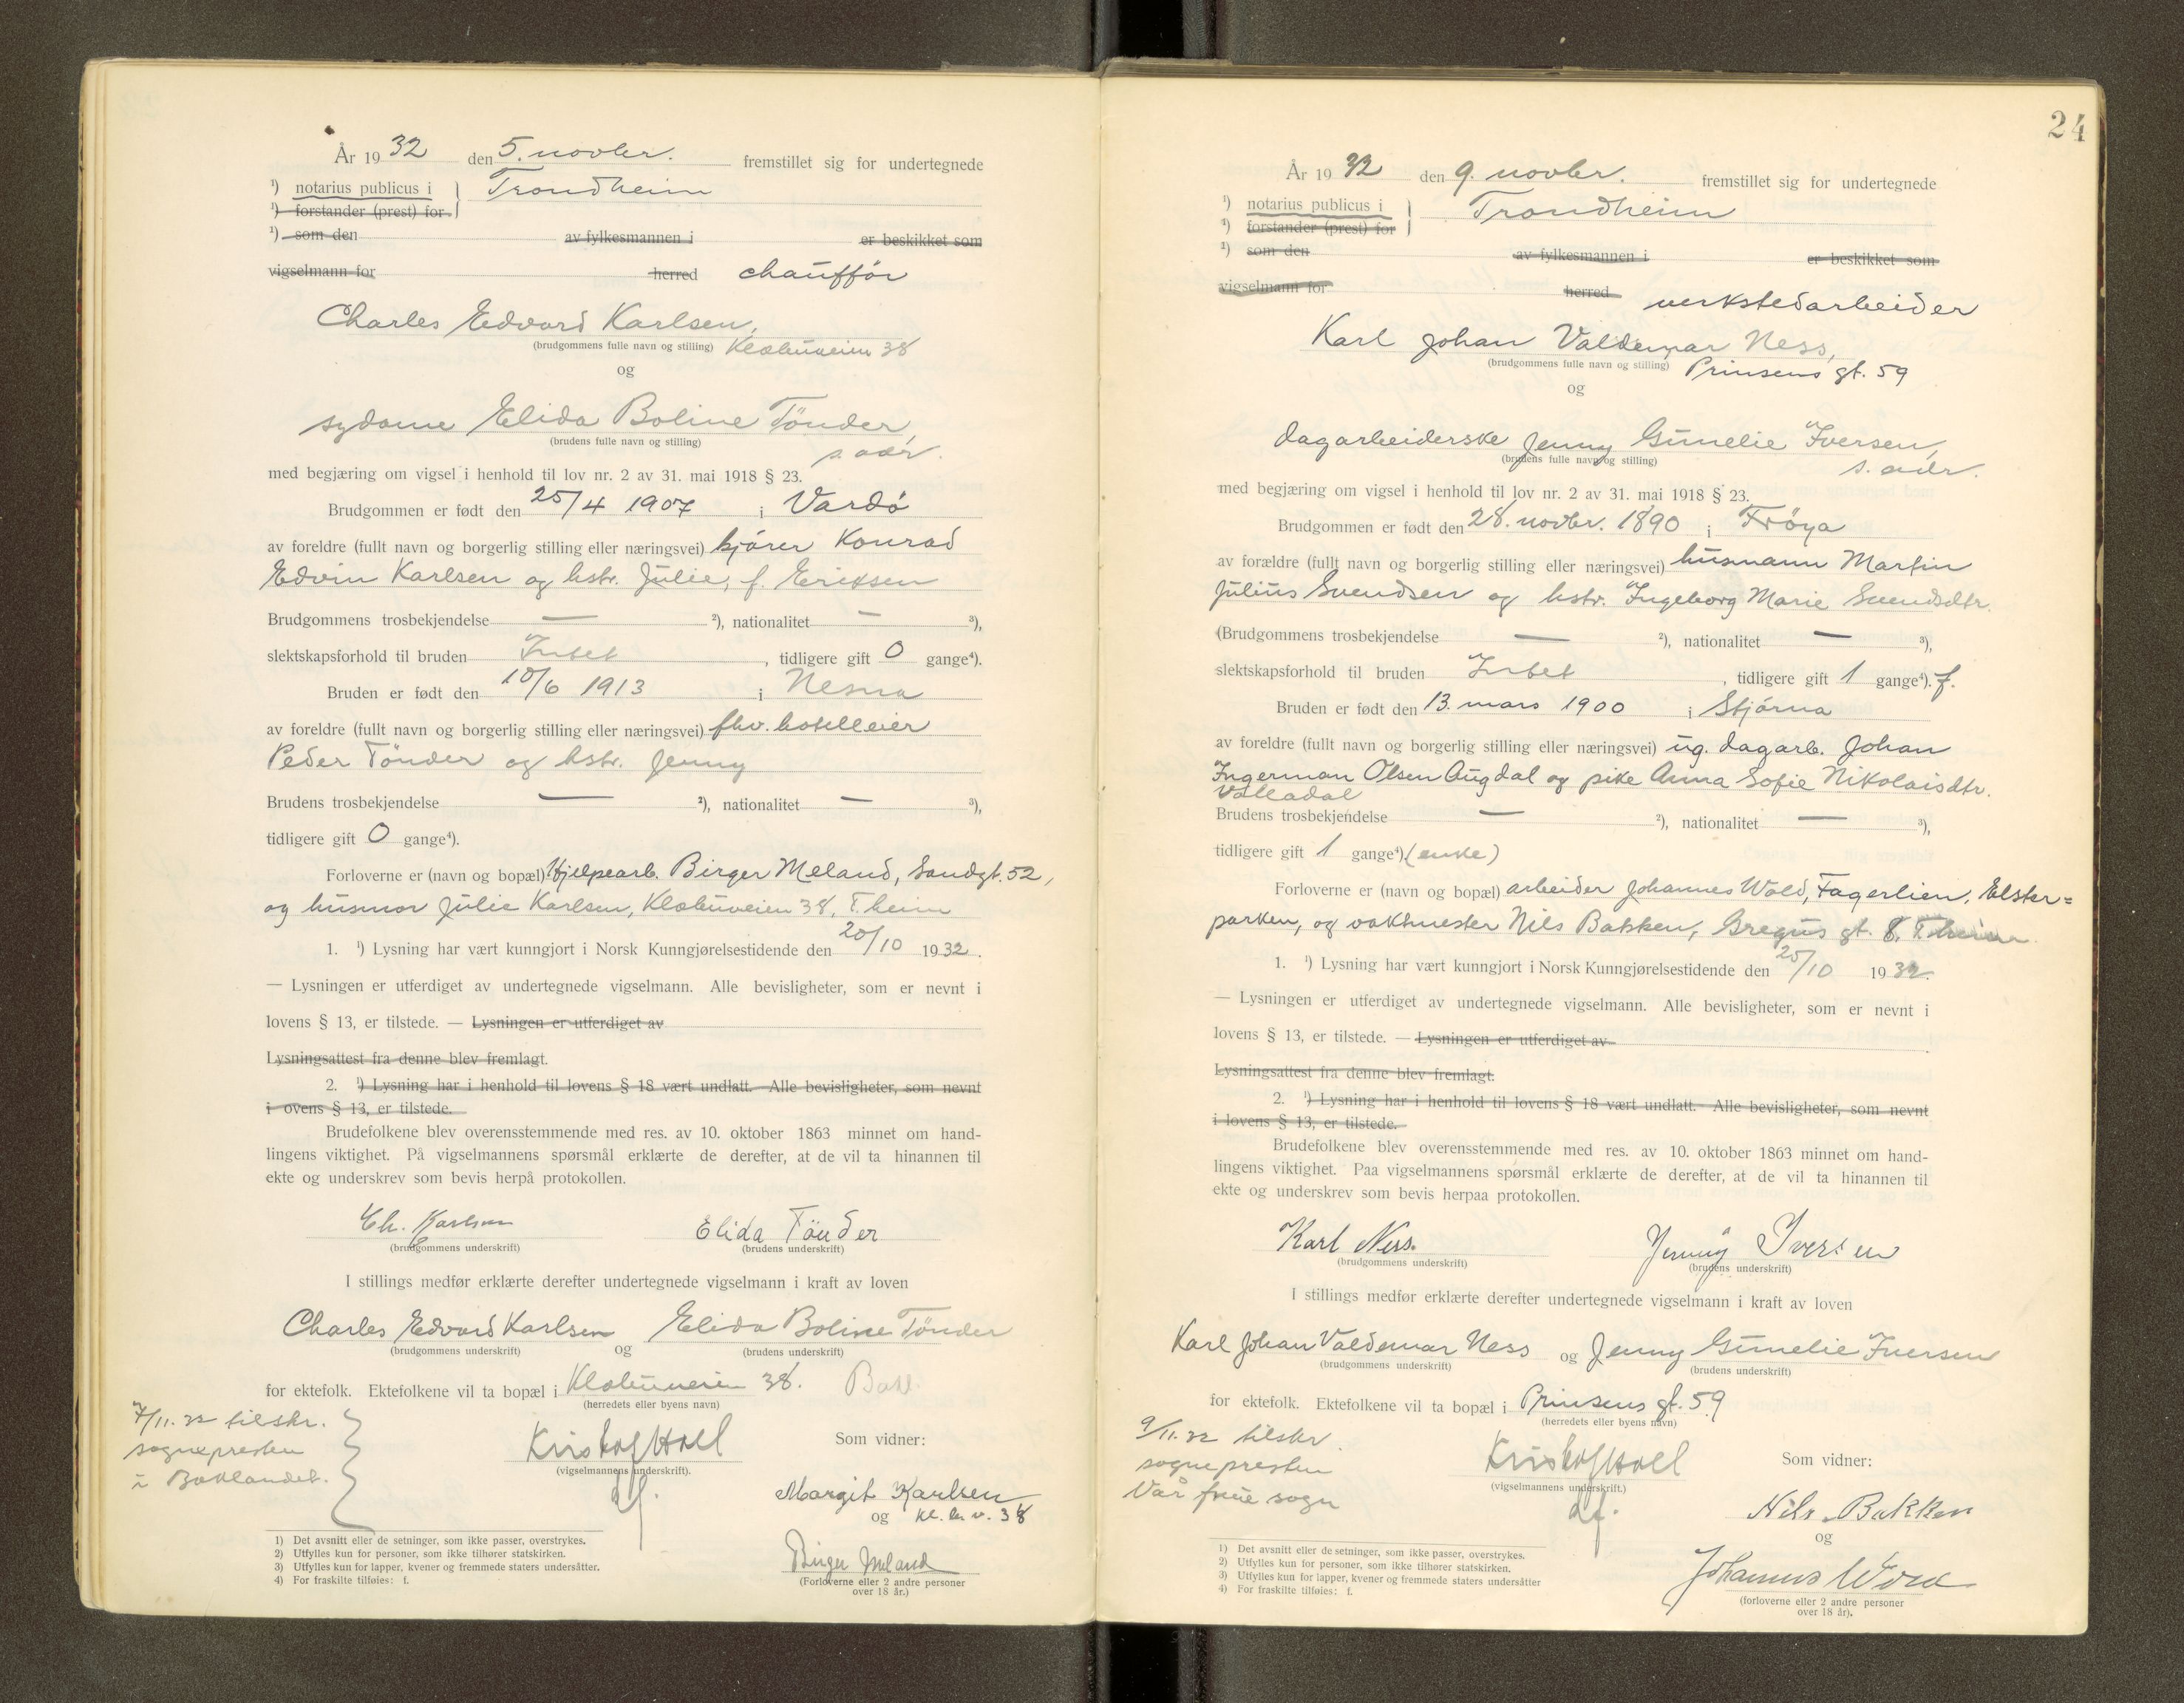 År 1932 den 5. novbr. fremstillet sig for undertegnede
¹) notarius publicus i } Trondheim
¹) forstander (prest) for
¹) som den av fylkesmannen i er beskikket som
vigselmann for herred chauffør
Charles Edvard Karlsen,
(brudgommens fulle navn og stilling) Klæbuveien 38
og
sydame Elida Boline Tönder,
(brudens fulle navn og stilling)
s. adr.
med begjæring om vigsel i henhold til lov nr. 2 av 31. mai 1918 § 23.
Brudgommen er født den 25/4 1907 i Vardø
av foreldre (fullt navn og borgerlig stilling eller næringsvei) kjører Konrad
Edvin Karlsen og hstr. Julie, f. Eriksen
Brudgommens trosbekjendelse — ²), nationalitet — ³),
slektskapsforhold til bruden Intet, tidligere gift 0 gange⁴).
Bruden er født den 10/6 1913 i Nesna
av foreldre (fullt navn og borgerlig stilling eller næringsvei) fhv. hotelleier
Peder Tönder og hstr. Jenny
Brudens trosbekjendelse — ²), nationalitet — ³),
tidligere gift 0 gange⁴).
Forloverne er (navn og bopæl) Hjelpearb. Birger Meland, Sandgt. 52,
og husmor Julie Karlsen, Klæbuveien 38, T.heim
1. ¹) Lysning har vært kunngjort i Norsk Kunngjørelsestidende den 20/10 1932.
— Lysningen er utferdiget av undertegnede vigselmann. Alle bevisligheter, som er nevnt i
lovens § 13, er tilstede. — Lysningen er utferdiget av
Lysningsattest fra denne blev fremlagt.
2. ¹) Lysning har i henhold til lovens § 18 vært undlatt. Alle bevisligheter, som nevnt
i ovens § 13, er tilstede.
Brudefolkene blev overensstemmende med res. av 10. oktober 1863 minnet om hand-
lingens viktighet. På vigselmannens spørsmål erklærte de derefter, at de vil ta hinannen til
ekte og underskrev som bevis herpå protokollen.
Ch. Karlsen Elida Tönder
(brudgommens underskrift) (brudens underskrift)
I stillings medfør erklærte derefter undertegnede vigselmann i kraft av loven
Charles Edvard Karlsen og Elida Boline Tönder
(brudgommens underskrift) (brudens underskrift)
for ektefolk. Ektefolkene vil ta bopæl i Klæbuveien 38. Bakl.
(herredets eller byens navn)
7/11.32 tilskr.
sognepresten
i Baklandet.
Kristof Holl
(vigselmannens underskrift).
Som vidner:
Margit Karlsen
og Kl. b. v. 38
Birger Meland
(Forloverne eller 2 andre personer
over 18 år.)
1) Det avsnitt eller de setninger, som ikke passer, overstrykes.
2) Utfylles kun for personer, som ikke tilhører statskirken.
3) Utfylles kun for lapper, kvener og fremmede staters undersåtter.
4) For fraskilte tilføies: f.
24
År 1932 den 9. novbr. fremstillet sig for undertegnede
¹) notarius publicus i } Trondheim
¹) forstander (prest) for
¹) som den av fylkesmannen i er beskikket som
vigselmann for herred verkstedarbeider
Karl Johan Valdemar Ness,
(brudgommens fulle navn og stilling) Prinsens gt. 59
og
dagarbeiderske Jenny Gunelie Iversen,
(brudens fulle navn og stilling)
s. adr.
med begjæring om vigsel i henhold til lov nr. 2 av 31. mai 1918 § 23.
Brudgommen er født den 28. novbr. 1890 i Frøya
av forældre (fullt navn og borgerlig stilling eller næringsvei) husmann Martin
Julius Svendsen og hstr. Ingeborg Marie Svendsdtr.
(Brudgommens trosbekjendelse — ²), nationalitet — ³),
slektskapsforhold til bruden Intet, tidligere gift 1 gange⁴). f.
Bruden er født den 13. mars 1900 i Stjørna
av foreldre (fullt navn og borgerlig stilling eller næringsvei) ug. dagarb. Johan
Ingerman Olsen Augdal og pike Anna Sofie Nikolaisdtr.
Valladal
Brudens trosbekjendelse — ²), nationalitet — ³),
tidligere gift 1 gange⁴). (enke)
Forloverne er (navn og bopæl) arbeider Johannes Wold, Fagerlien, Elster=
parken, og vaktmester Nils Bakken, Gregus gt. 8. T.heim.
1. ¹) Lysning har vært kunngjort i Norsk Kunngjørelsestidende den 25/10 1932.
— Lysningen er utferdiget av undertegnede vigselmann. Alle bevisligheter, som er nevnt i
lovens § 13, er tilstede. — Lysningen er utferdiget av
Lysningsattest fra denne blev fremlagt.
2. ¹) Lysning har i henhold til lovens § 18 vært undlatt. Alle bevisligheter, som nevnt
i lovens § 13, er tilstede.
Brudefolkene blev overensstemmende med res. av 10. oktober 1863 minnet om hand-
lingens viktighet. Paa vigselmannens spørsmål erklærte de derefter, at de vil ta hinannen til
ekte og underskrev som bevis herpaa protokollen.
Karl Ness. Jenny Iversen
(brudgommens underskrift) (brudens underskrift)
I stillings medfør erklærte derefter undertegnede vigselmann i kraft av loven
Karl Johan Valdemar Ness og Jenny Gunelie Iversen
(brudgommens underskrift) (brudens underskrift)
for ektefolk. Ektefolkene vil ta bopæl i Prinsens gt. 59
(herredets eller byens navn)
9/11.32 tilskr.
sognepresten
Vår frue sogn
Kristof Holl
(vigselmannens underskrift.)
Som vidner:
Nils Bakken
og
Johannes Wold
(forloverne eller 2 andre personer
over 18 år).
1) Det avsnitt eller de setninger, som ikke passer, overstrykes.
2) Utfylles kun for personer, som ikke tilhører statskirken.
3) Utfylles kun for lapper, kvener og fremmede staters undersåtter
4) For fraskilte tilføies: f.